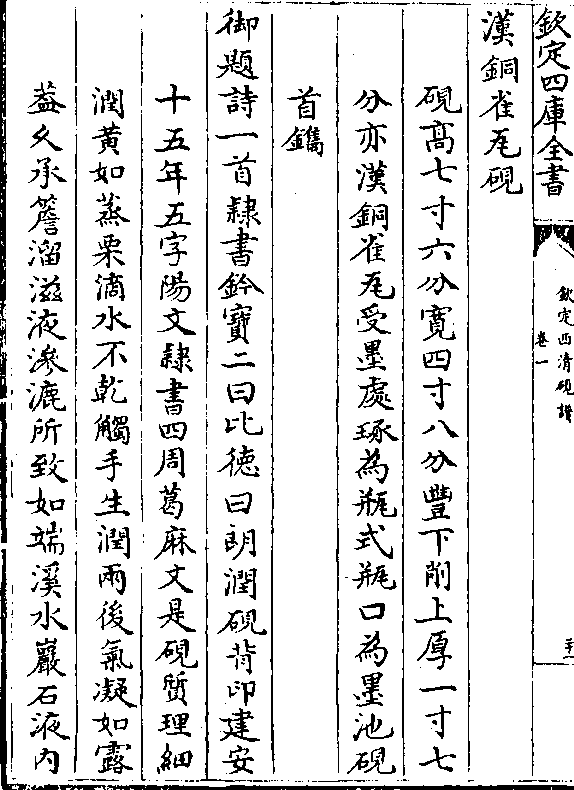 欽定四庫全書
欽定西清硯譜
卷一
二十一
漢銅雀瓦硯
硯高七寸六分寬四寸八分豐下削上厚一寸七
分亦漢銅雀瓦受墨處琢為瓶式瓶口為墨池硯
首鐫
御題詩一首隸書鈐寶二曰比德曰朗潤硯背印建安
十五年五字陽文隸書四周葛麻文是硯質理細
潤黃如蒸栗滴水不乾觸手生潤雨後氣凝如露
葢久承簷溜滋液滲漉所致如端溪水巖石液内